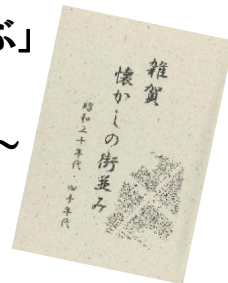 ぶ」
～
雑賀
懐かしの街並み
昭和三十年代・四十年代